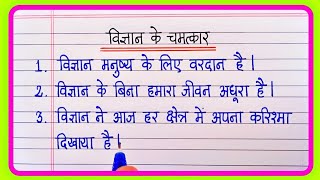 विज्ञान के चमत्कार
1. विज्ञान मनुष्य के लिए वरदान है।
2. विज्ञान के बिना हमारा जीवन अधूरा है।
3. विज्ञान ने आज हर क्षेत्र में अपना करिश्मा
दिखाया है।